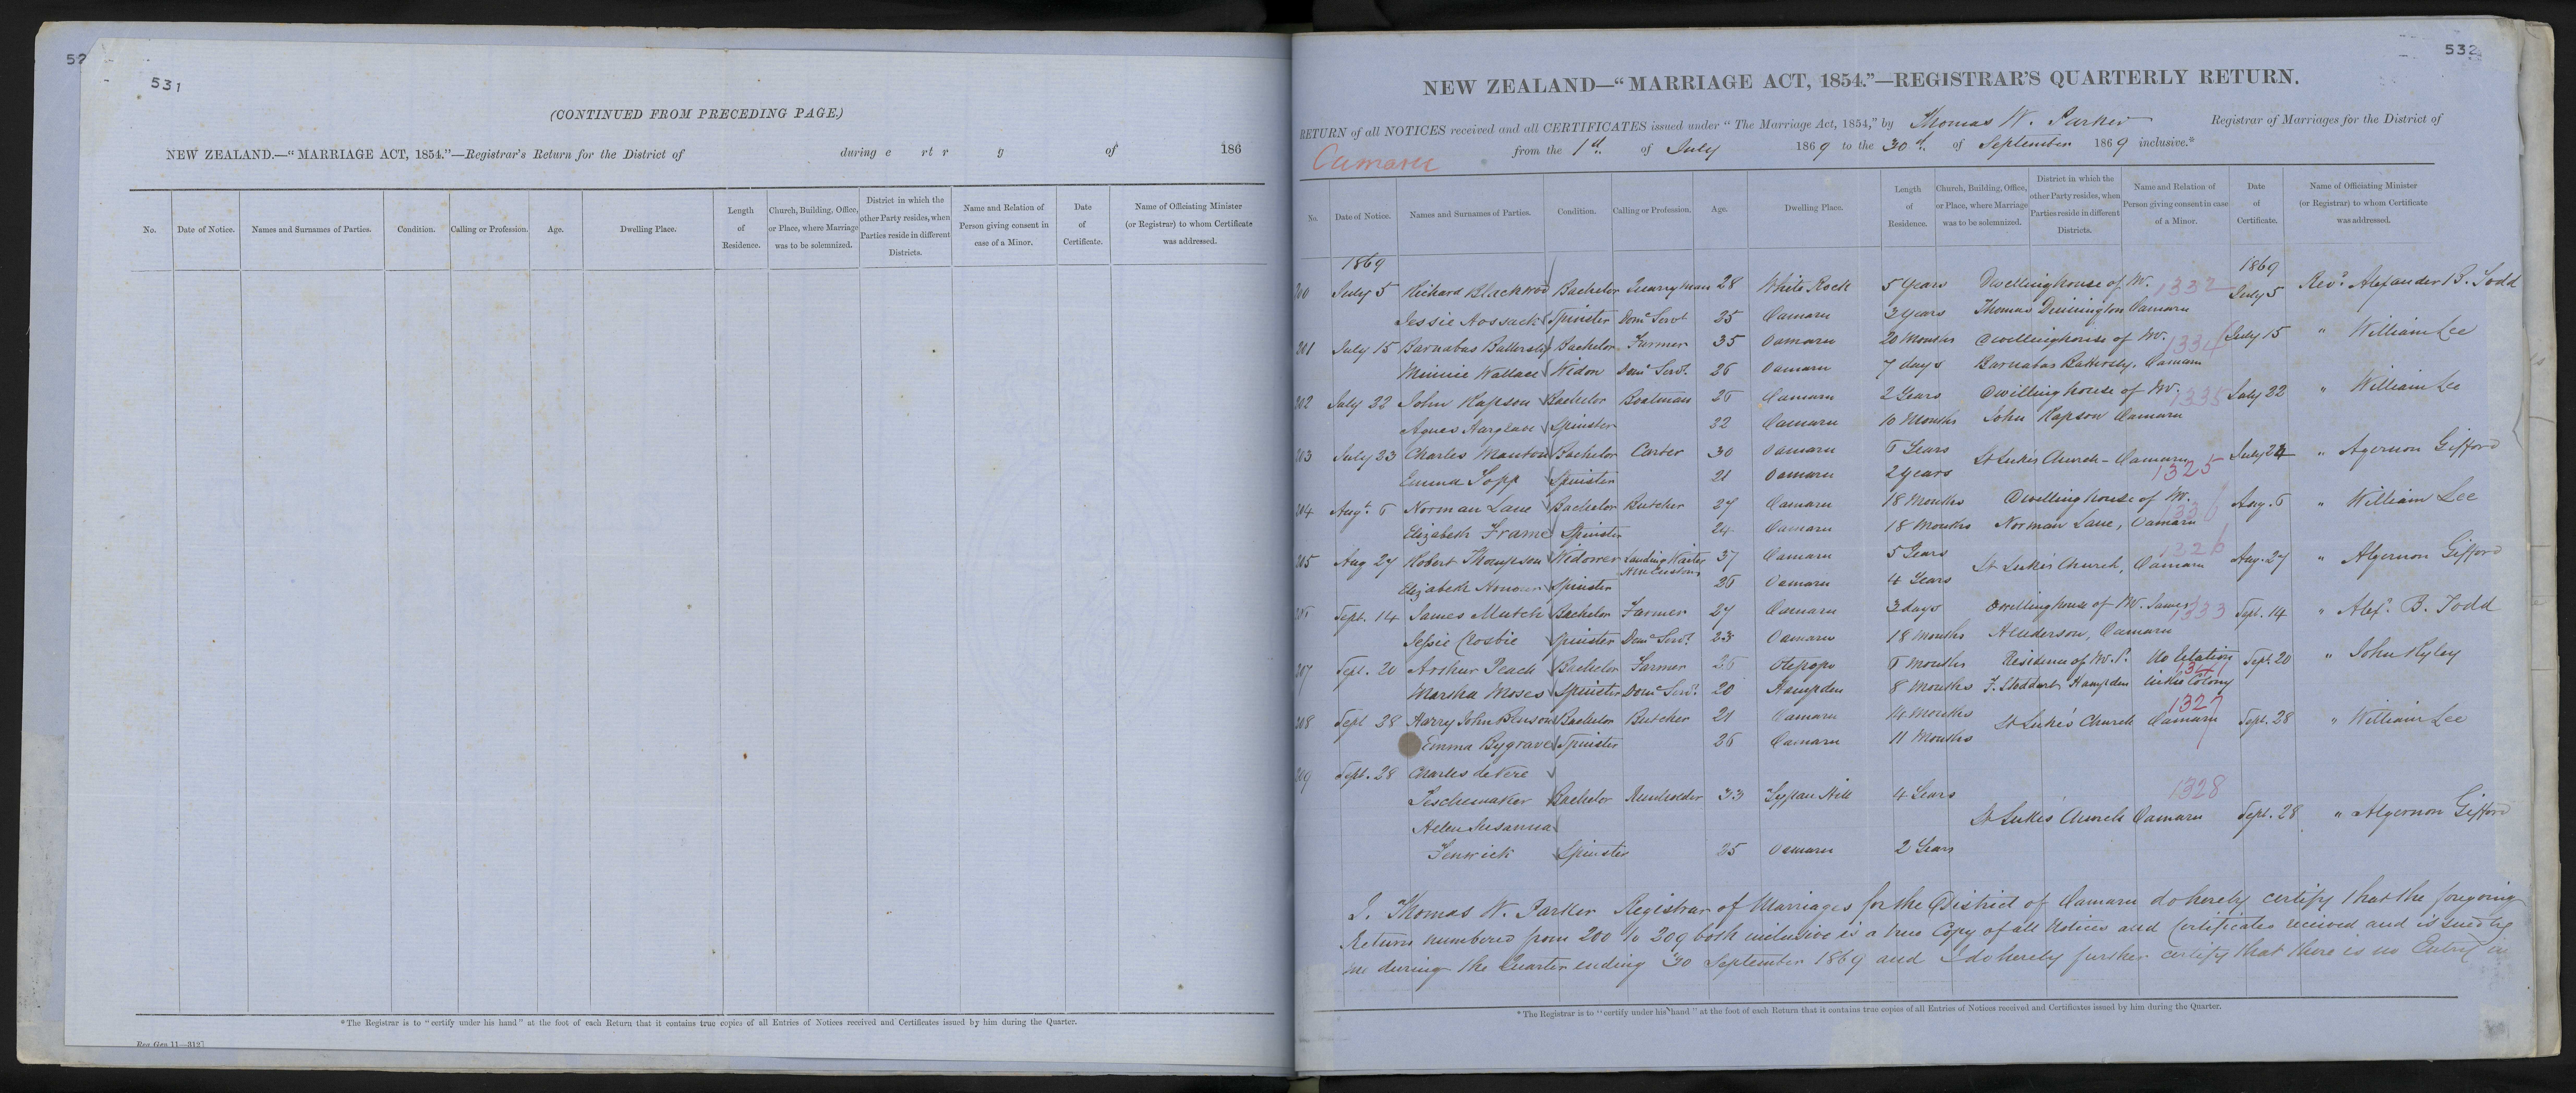 52
531
(CONTINUED FROM PRECEDING PAGE.)
NEW ZEALAND.—"MARRIAGE ACT, 1854."—Registrar's Return for the District of during of 186
No. Date of Notice. Names and Surnames of Parties. Condition. Calling or Profession. Age. Dwelling Place. Length of Residence. Church, Building, Office, or Place, where Marriage was to be solemnized. District in which the other Party resides, when Parties reside in different Districts. Name and Relation of Person giving consent in case of a Minor. Date of Certificate. Name of Officiating Minister (or Registrar) to whom Certificate was addressed.
*The Registrar is to "certify under his hand" at the foot of each Return that it contains true copies of all Entries of Notices received and Certificates issued by him during the Quarter.
Reg. Gen 11—3127
532
NEW ZEALAND—"MARRIAGE ACT, 1854."—REGISTRAR'S QUARTERLY RETURN.
RETURN of all NOTICES received and all CERTIFICATES issued under "The Marriage Act, 1854," by Thomas W. Parker Registrar of Marriages for the District of
Oamaru from the 1st of July 1869 to the 30th of September 1869 inclusive.*
No. Date of Notice. Names and Surnames of Parties. Condition. Calling or Profession. Age. Dwelling Place. Length of Residence. Church, Building, Office, or Place, where Marriage was to be solemnized. District in which the other Party resides, when Parties reside in different Districts. Name and Relation of Person giving consent in case of a Minor. Date of Certificate. Name of Officiating Minister (or Registrar) to whom Certificate was addressed.
1869 1869
200 July 5 Richard Blackwood Bachelor Quarryman 28 White Rock 5 Years Dwelling house of Mr. 1332 July 5 Revd. Alexander B. Todd
Jessie Hossack Spinster Domc Servt 25 Oamaru 2 years Thomas Dinnington Oamaru
201 July 15 Barnabas Battersby Bachelor Farmer 35 Oamaru 20 Months Dwelling house of Mr. 1334 July 15 " William Lee
Minnie Wallace Widow Domc Servt. 26 Oamaru 7 days Barnabas Battersby, Oamaru
202 July 22 John Rapson Bachelor Boatman 26 Oamaru 2 Years Dwelling house of Mr. 1335 July 22 " William Lee
Agnes Hargrave Spinster 32 Oamaru 10 Months John Rapson Oamaru
203 July 23 Charles Manton Bachelor Carter 30 Oamaru 6 Years St Lukes Church - Oamaru 1325 July 24 " Agernon Gifford
Emma Topp Spinster 21 Oamaru 2 years
204 Augt. 6 Norman Lane Bachelor Butcher 27 Oamaru 18 Months Dwelling house of Mr. 1336 Aug. 6 " William Lee
Elizabeth Frame Spinster 24 Oamaru 18 Months Norman Lane, Oamaru
205 Aug 27 Robert Thompson Widower Landing Waiter H M Customs 37 Oamaru 5 Years St Luke's Church, Oamaru 1326 Aug. 27 " Algernon Gifford
Elizabeth Honour Spinster 26 Oamaru 4 Years
206 Sept. 14 James Mutch Bachelor Farmer 27 Oamaru 3 days Dwelling house of Mr. James 1333 Sept. 14 " Alexr. B. Todd
Jessie Crosbie Spinster Domc Servt. 23 Oamaru 18 Months Henderson, Oamaru
207 Sept. 20 Arthur Peach Bachelor Farmer 26 Otepopo 6 months Residence of Mr. P. No relation Sept. 20 " John Ryley
Marsha Moses Spinster Domc Servt. 20 Hampden 8 Months F. Stoddart Hampden in the Colony
208 Sept 28 Harry John Benson Bachelor Butcher 21 Oamaru 14 Months St Luke's Church Oamaru 1327 Sept. 28 " William Lee
Emma Bygrave Spinster 26 Oamaru 11 Months
209 Sept. 28 Charles de Vere
Teschemaker Bachelor Runholder 33 Taipau Hill 4 Years 1328
Helen Susanna St Luke's Church Oamaru Sept. 28 " Algernon Gifford
Fenwick Spinster 25 Oamaru 2 Years
I. Thomas W. Parker Registrar of Marriages for the District of Oamaru do hereby certify that the foregoing
Return numbered from 200 to 209 both inclusive is a true Copy of all Notices and Certificates received and issued by
me during the Quarter ending 30 September 1869 and I do hereby further certify that there is no Entry in
*The Registrar is to "certify under his hand" at the foot of each Return that it contains true copies of all Entries of Notices received and Certificates issued by him during the Quarter.